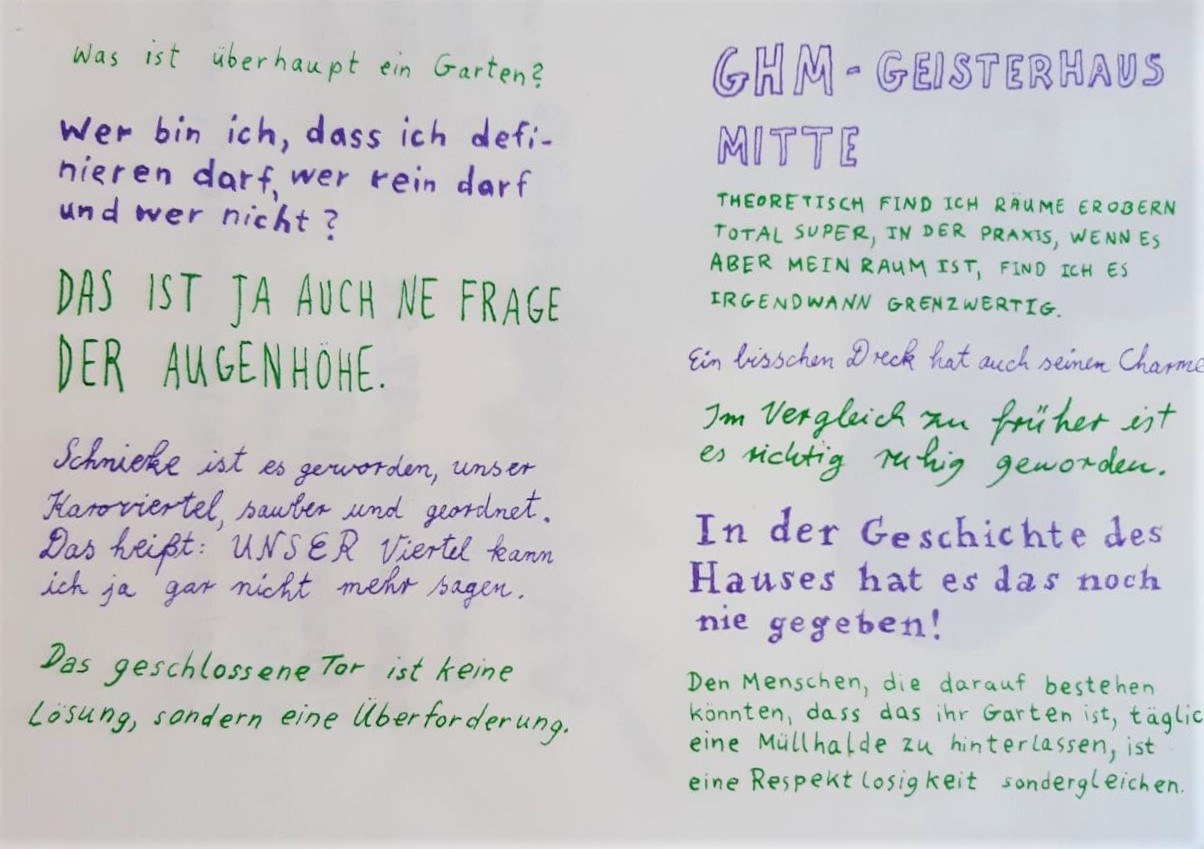 Was ist überhaupt ein Garten?
Wer bin ich, dass ich defi-
nieren darf, wer rein darf
und wer nicht?
DAS IST JA AUCH NE FRAGE
DER AUGENHÖHE.
Schnieke ist es geworden, unser
Karoviertel, sauber und geordnet.
Das heißt: UNSER Viertel kann
ich ja gar nicht mehr sagen.
Das geschlossene Tor ist keine
Lösung, sondern eine Überforderung.
GHM - GEISTERHAUS
MITTE
THEORETISCH FIND ICH RÄUME EROBERN
TOTAL SUPER, IN DER PRAXIS, WENN ES
ABER MEIN RAUM IST, FIND ICH ES
IRGENDWANN GRENZWERTIG.
Ein bisschen Dreck hat auch seinen Charme
Im Vergleich zu früher ist
es richtig ruhig geworden.
In der Geschichte des
Hauses hat es das noch
nie gegeben!
Den Menschen, die darauf bestehen
könnten, dass das ihr Garten ist, täglic
eine Müllhalde zu hinterlassen, ist
eine Respektlosigkeit sondergleichen.